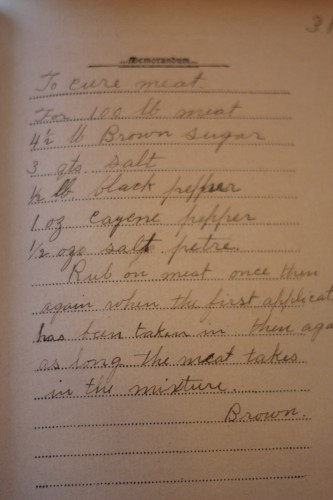 31
Memorandum
To cure meat.
For 100 lb meat
4½ lb Brown sugar
3 qts. salt
½ lb. black pepper
1 oz cayene pepper
½ ozs salt petre.
Rub on meat once then
again when the first applicat
has been taken in then aga
as long the meat takes
in the mixture
Brown.